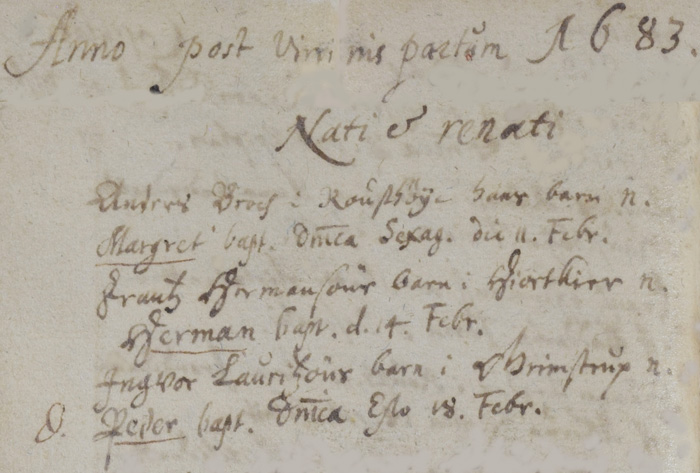 Anno post Virginis partum 1683.
Nati & renati
Anders Broch i Rousthöye hans barn n.
Margret bapt. Dnica Sexag. die 11. Febr.
Frantz Hermansøns barn i Hiortkier n.
Herman bapt. d. 14. Febr.
Ingvor Lauritzøns barn i Grimstrup n.
D. Peder bapt. Dnica Esto 18. Febr.